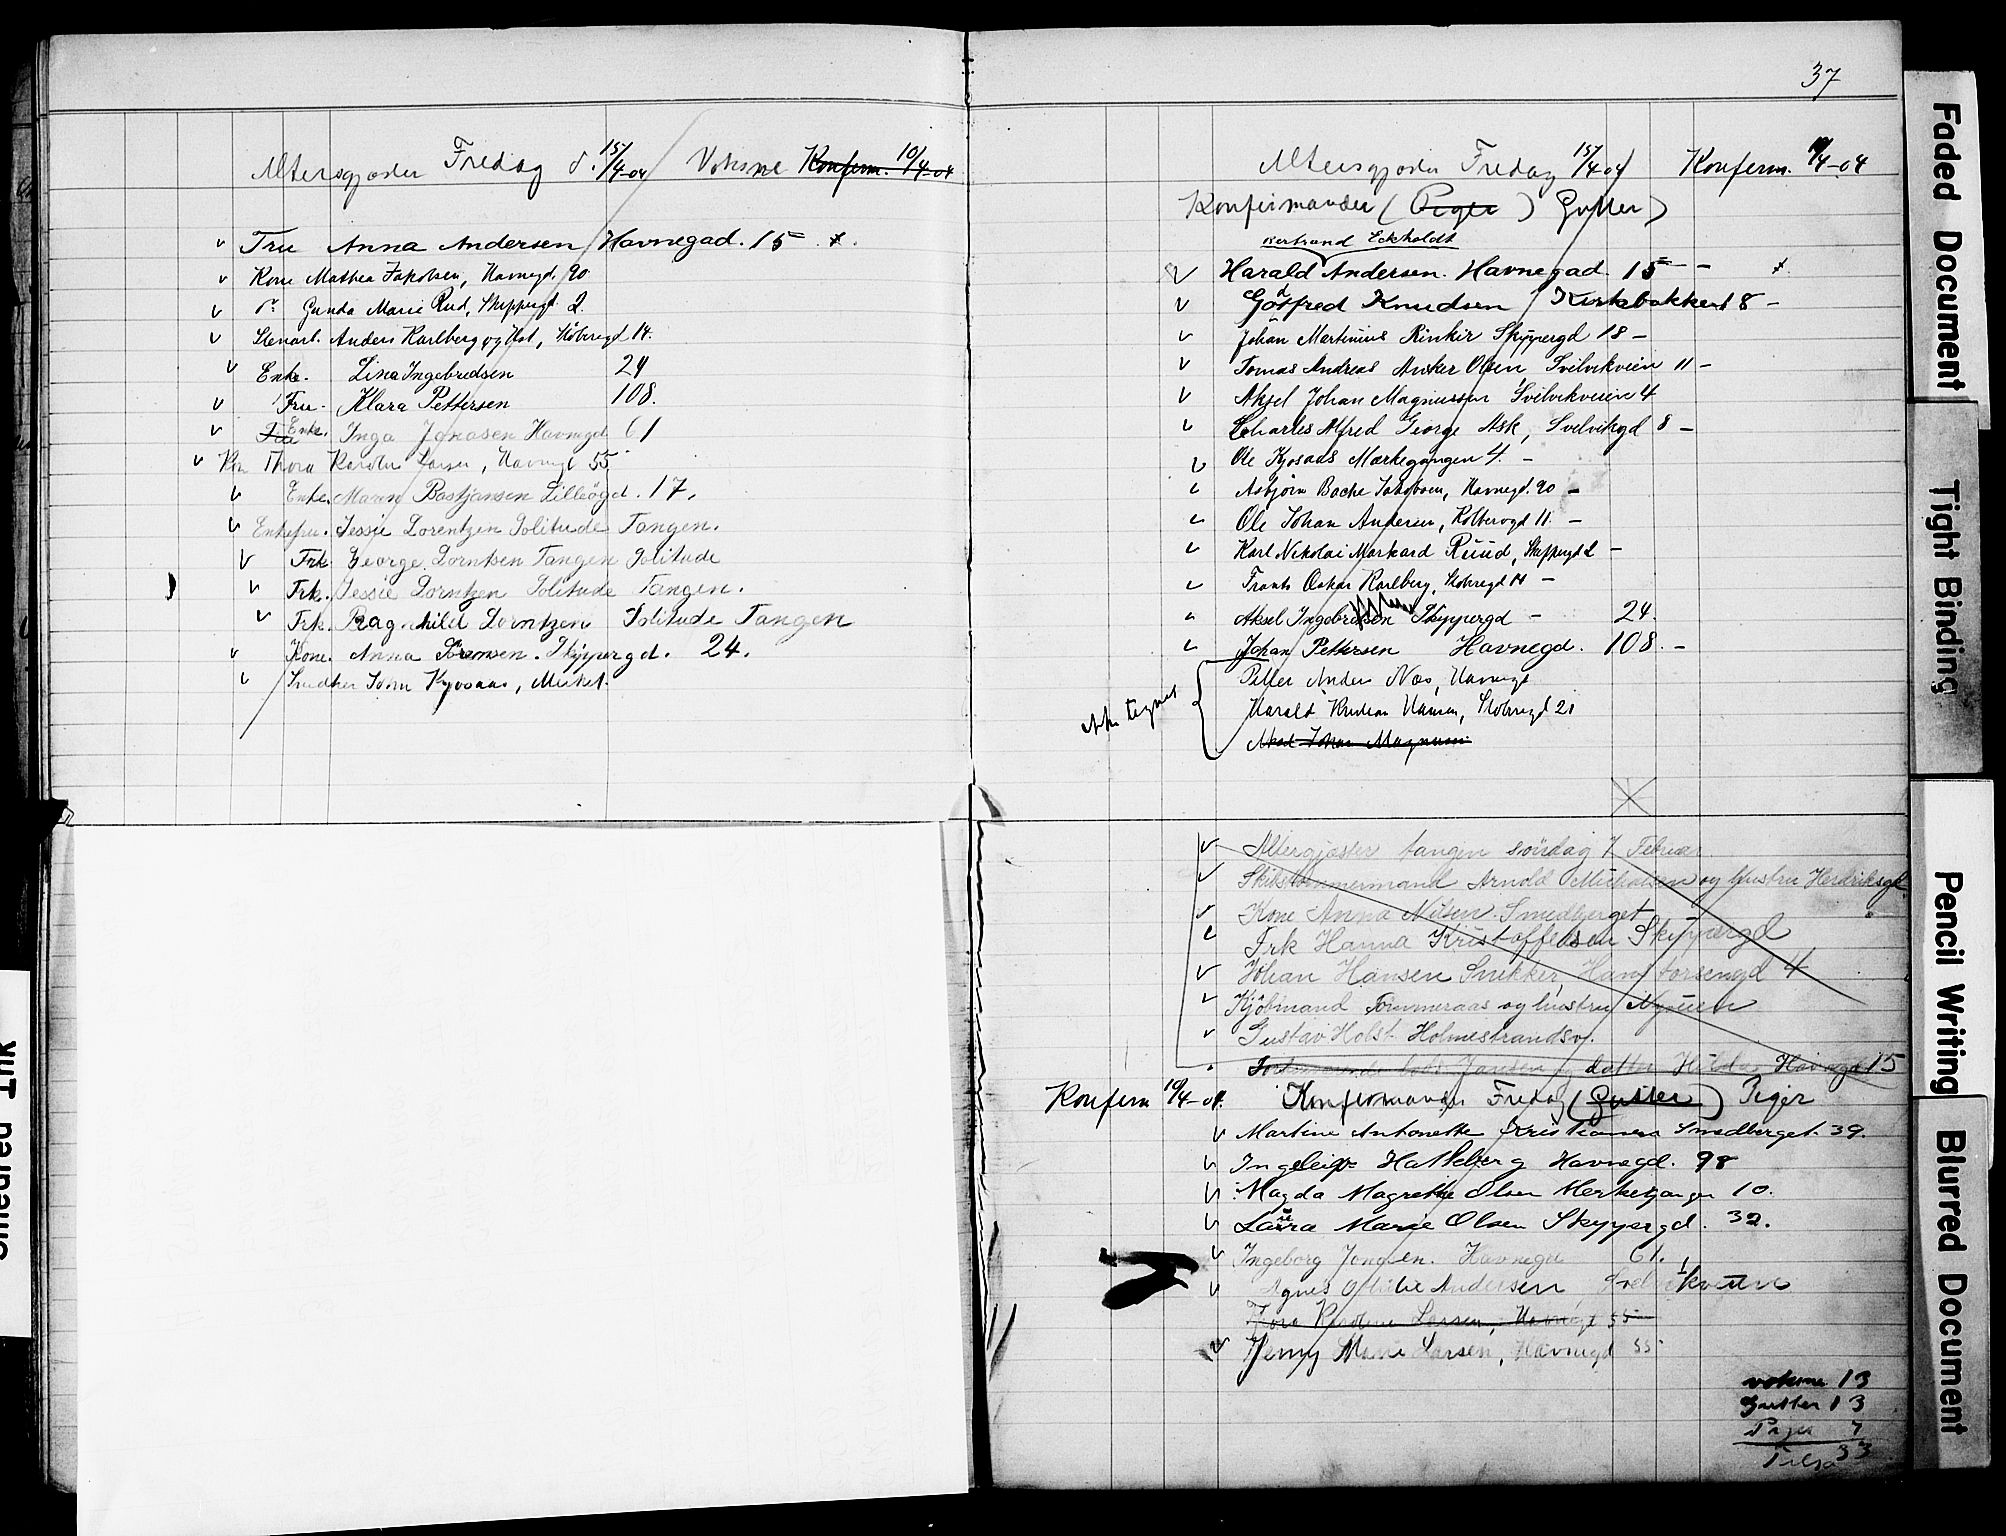 37
Altersgjæster Fredag d. 15/4-04 Voksne Konferm. 10/4-04
Fru Anna Andersen Havnegad. 15
Kone Mathea Jakobsen, Havnegd. 90
do Gunda Marie Rud, Skippergd. 2.
Stenarb. Anders Karlberg og Hst, Stobergd 14.
Enke. Lina Ingebredsen 24
Fru. Klara Pettersen 108.
Fru Enke. Inga Jonasen Havnegd 61
Kon Thora Karoline Larsen, Havnegd 55
Enke. Maren Bastjansen Lilleögd. 17.
Enkefru. Jessie Lorentzen Solitude Tangen.
Frk George Lorntsen Tangen Solitude
Frk. Jessie Lorntzen Solitude Tangen.
Frk. Ragnhild Lorntzen Solitude Tangen
Kone. Anna Sörensen. Skippergd. 24.
Snedker John Kjosaas, Merket.
Altersgjæster Fredag 15/4-04 Konferm. 10/4-04
Konfirmander (Piger) Gutter)
Bertrand Eckholdt
Harald Andersen. Havnegad. 15 -
Godfred Knudsen Kirkebakken 8 -
Johan Martinius Rinkir Skippergd 18 -
Tomas Andreas Ansker Olsen Svelvikveien 11 -
Aksel Johan Magnussen Svelvikveien 4
Charles Alfred George Ask, Svelvikgd 8 -
Ole Kjosaas Merkegangen 4. -
Asbjørn Bache Jakobsen, Havnegd. 90 -
Ole Johan Andersen, Kolbergd 11. -
Karl Nikolai Markard Ruud, Skippergd 2 -
Frants Oskar Karlberg, Stobergd 14 -
Aksel Ingebredsen Skippergd - 24.
Johan Pettersen Havnegd. 108. -
ikke tegnet
Petter Anders Næs, Havnegd
Harald Kristian Hansen, Stobergd 21
Aksel Johan Magnussen
Altergjæster tangen söndag 7 Februar
Skibstömmermand Arnold Michalsen og hustru Hendriksgd
Kone Anna Nilsen. Smedberget
Frk Hanna Kristoffersen Skippergd
Johan Hansen Snikker, Hans torsengd 4
Kjöbmand Tømmeraas og hustru Nyveien
Gustav Holst Holmestrandsv.
Jansen og datter Hilda Havnegd 15
Konferm 10/4-04. Konfirmander Fredag (Gutter) Piger
Martine Antonette Kristiansen Smedberget. 39.
Ingeleiv Hatleberg Havnegd. 98
Magda Magrethe Olsen Merkegangen 10.
Laura Marie Olsen Skippergd. 32.
Ingeborg Jonasen. Havnegd 61.
Agnes Othilie Andersen Svelvikveien
Thora Karoline Larsen, Havnegd 55
Jenny Marie Larsen, Havnegd 55
voksne 13
Gutter 13
Piger 7
Tilsa 33
Faded Document
Tight Binding
Pencil Writing
Blurred Document
Smeared Ink